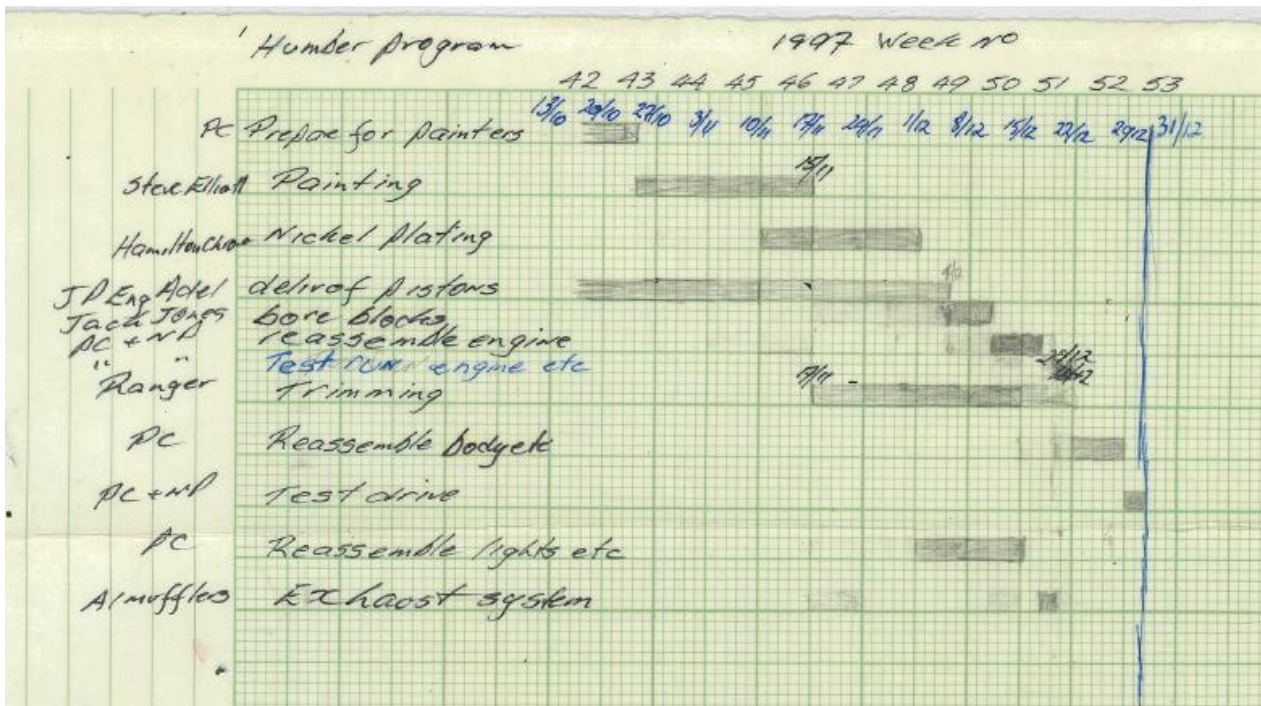 Humber program 1997 Week no
42 43 44 45 46 47 48 49 50 51 52 53
13/10 20/10 27/10 3/11 10/11 17/11 24/11 1/12 8/12 15/12 22/12 29/12 31/12
PC Prepae for painters
15/11
Steve Elliott Painting
Hamilton Chrome Nickel plating
4/12
J P Eng Adel deliv of pistons
Jack Jones bore blocks
PC + NP reassemble engine
" " Test run engine etc
Ranger Trimming 17/11
PC Reassemble body etc
PC + NP Test drive
PC Reassemble lights etc
A1 mufflers Exhaost system